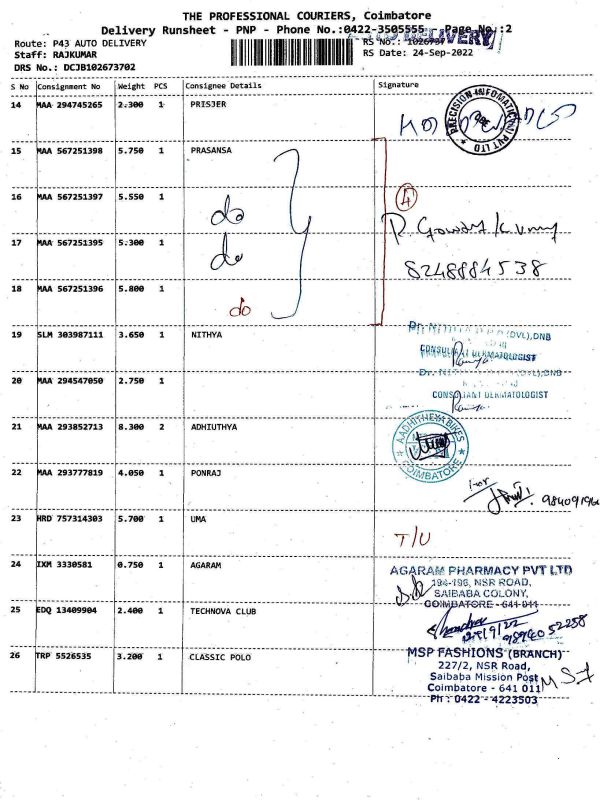 THE PROFESSIONAL COURIERS, Coimbatore
Delivery Runsheet - PNP - Phone No.:0422-3505555 Page No.:2
DELIVERY
Route: P43 AUTO DELIVERY RS No.:
Staff: RAJKUMAR RS Date: 24-Sep-2022
DRS No.: DCJB102673702
S No Consignment No Weight PCS Consignee Details Signature
14 MAA 294745265 2.300 1 PRISJER
PRECISION INFOMATIC PVT LTD
15 MAA 567251398 5.750 1 PRASANSA
16 MAA 567251397 5.550 1 do 4
17 MAA 567251395 5.300 1 do R. Gowdry
8248884538
18 MAA 567251396 5.800 1 do
19 SLM 303987111 3.650 1 NITHYA (DVL),DNB
CONSULTANT DERMATOLOGIST
20 MAA 294547050 2.750 1 (DVL),DNB
CONSULTANT DERMATOLOGIST
21 MAA 293852713 8.300 2 ADHIUTHYA AADHITHEYA BIKES COIMBATORE
22 MAA 293777819 4.050 1 PONRAJ For
23 HRD 757314303 5.700 1 UMA T/U
24 IXM 3330581 0.750 1 AGARAM AGARAM PHARMACY PVT LTD
194-196, NSR ROAD,
SAIBABA COLONY,
COIMBATORE - 641 011
25 EDQ 13409904 2.400 1 TECHNOVA CLUB
9894052258
26 TRP 5526535 3.200 1 CLASSIC POLO MSP FASHIONS (BRANCH)
227/2, NSR Road,
Saibaba Mission Post
Coimbatore - 641 011
Ph : 0422 - 4223503